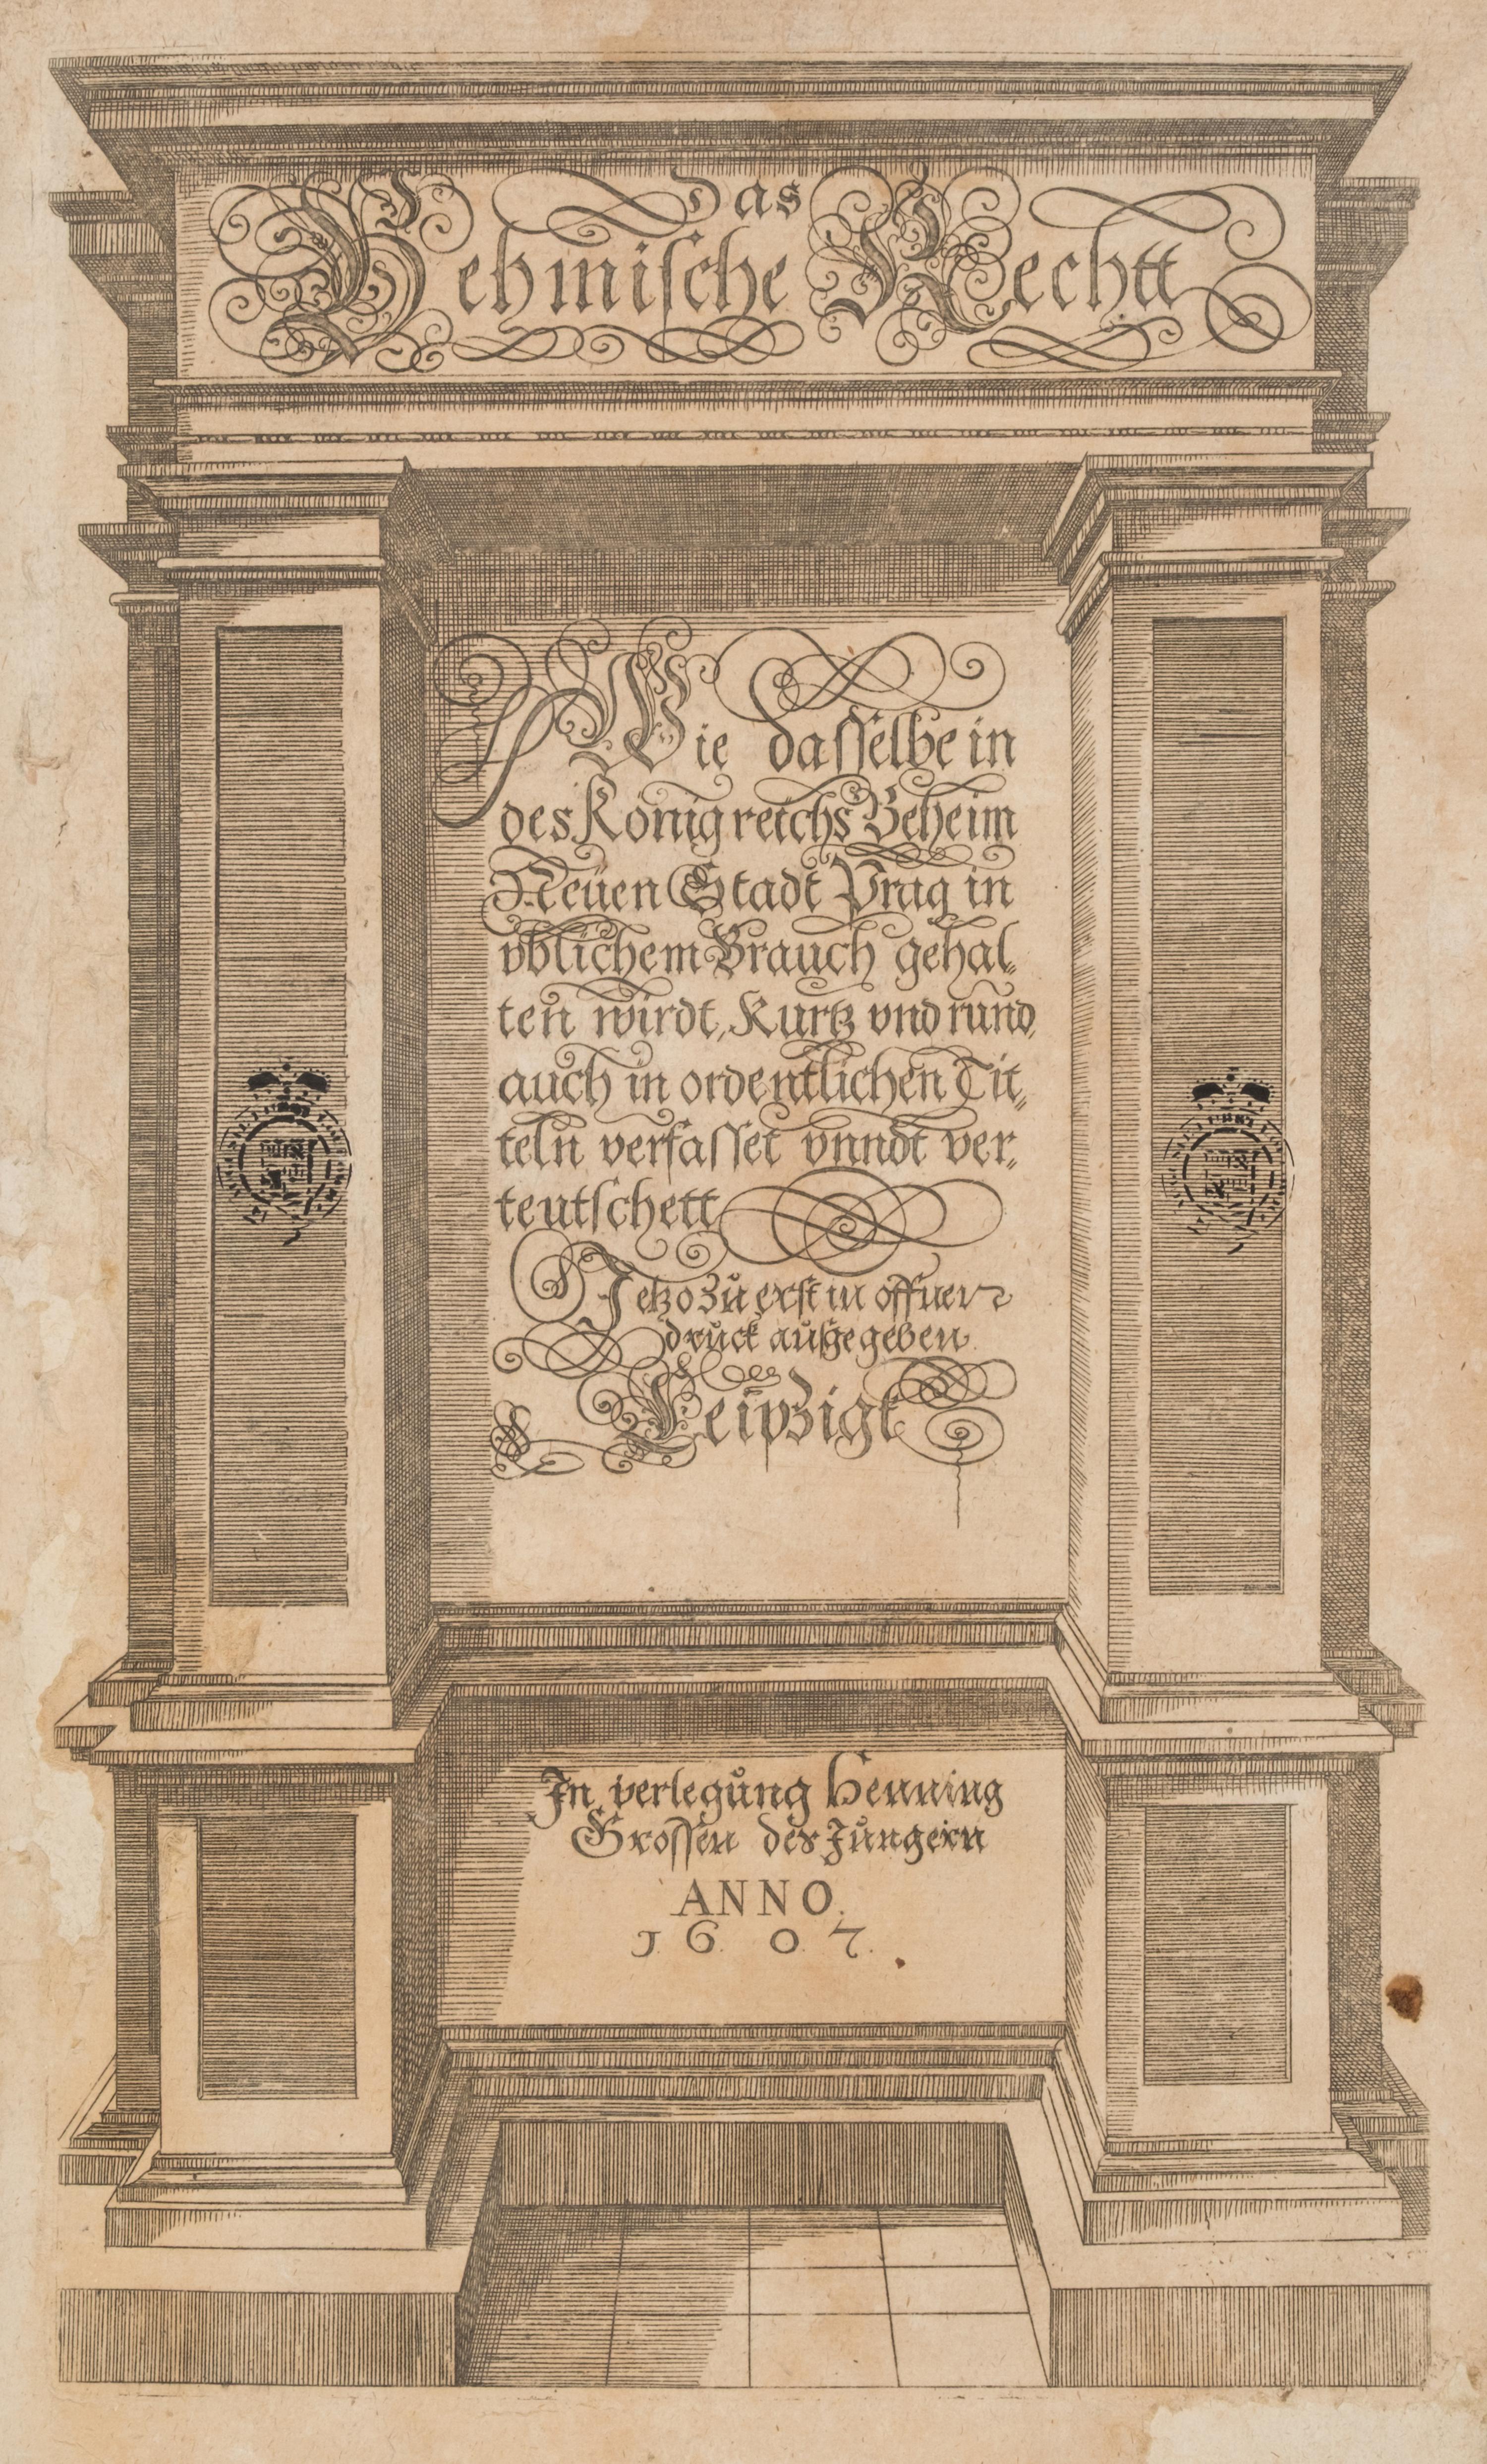 Das
Behmische Rechtt
Wie dasselbe in
des Königreichs Beheim
Neuen Stadt Prag in
vblichem Brauch gehal„
ten wirdt, Kurtz vnd rund,
auch in ordentlichen Tit„
teln verfasset vnndt ver„
teutschett
Jetzo zu erst in offner
druck außgegeben
Leipzigk
In verlegung Henning
Grossen des Jüngern
ANNO.
1607.